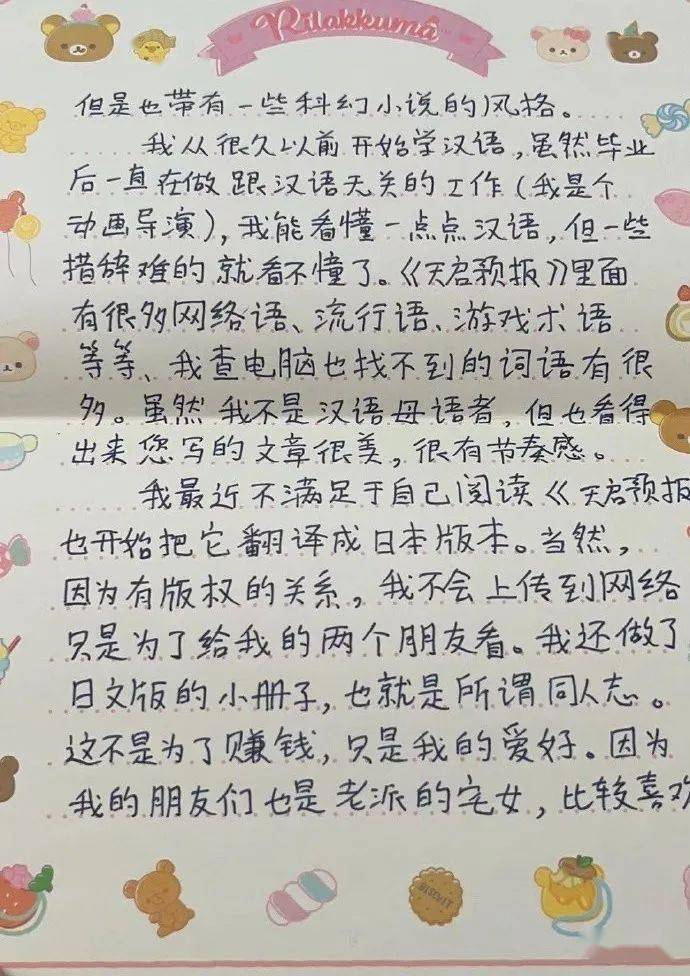 Rilakkuma
但是也带有一些科幻小说的风格。
我从很久以前开始学汉语，虽然毕业
后一直在做跟汉语无关的工作（我是个
动画导演），我能看懂一点点汉语，但一些
措辞难的就看不懂了。《天启预报》里面
有很多网络语、流行语、游戏术语
等等、我查电脑也找不到的词语有很
多。虽然我不是汉语母语者，但也看得
出来您写的文章很美，很有节奏感。
我最近不满足于自己阅读《天启预报
也开始把它翻译成日本版本。当然，
因为有版权的关系，我不会上传到网络
只是为了给我的两个朋友看。我还做了
日文版的小册子，也就是所谓同人志。
这不是为了赚钱，只是我的爱好。因为
我的朋友们也是老派的宅女，比较喜欢
BISCUIT